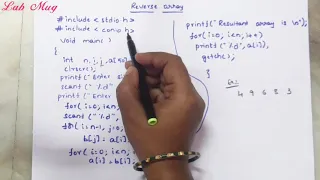 Lab Mug
Reverse array
# include < stdio.h>
# include < conio.h>
void main( )
{
int n, i, j, a[
clrscr();
printf(" Enter
scanf (" %d"
printf(" Enter
for( i=0; i<n;
scanf (" %d",
for( i=n-1, j=0;
b[j] =
for( i=0; i<n;
a[i] = b[i];
printf(" Resultant array is \n");
for( i=0; i<n; i++)
printf(" %d", a[i]);
getch();
}
4 9 6 3 3